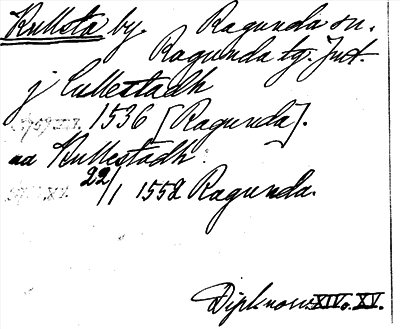 Kullsta by Ragunda sn.
Ragunda tg. Jmt.
j Cullestadh
1536 [Ragunda].
aa Kullestadh
22/1 1552 Ragunda.
Dipl. XIV o. XV.